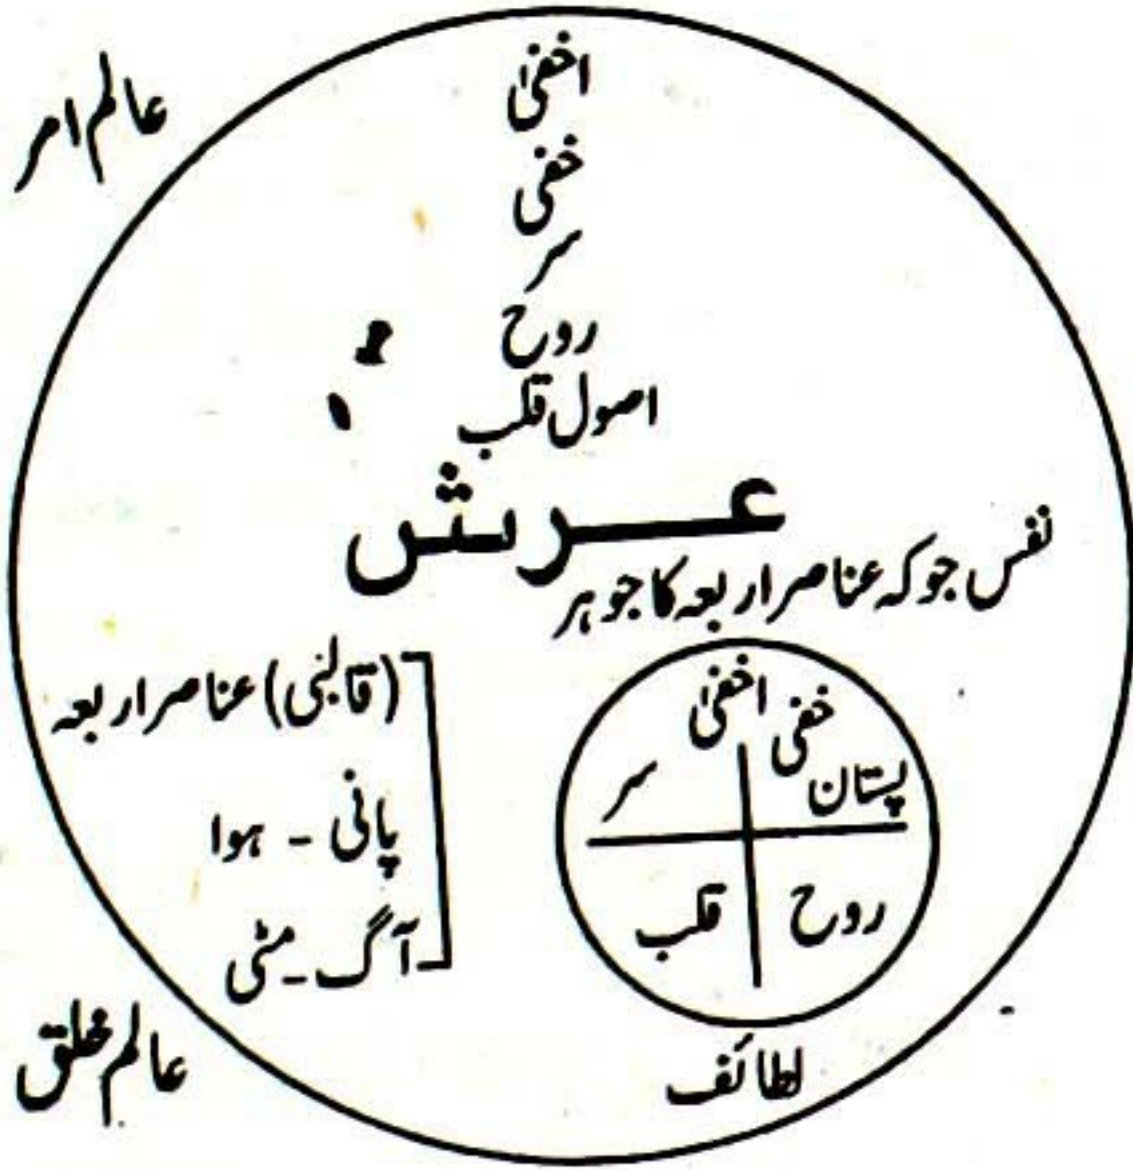 عالم امر
اخفیٰ
خفی
سر
روح
اصول قلب
عرش
نفس جو کہ عناصر اربعہ کا جوہر
(قالبی) عناصر اربعہ
پانی - ہوا
آگ - مٹی
اخفیٰ
خفی
سر
پستان
قلب
روح
لطائف
عالم خلق